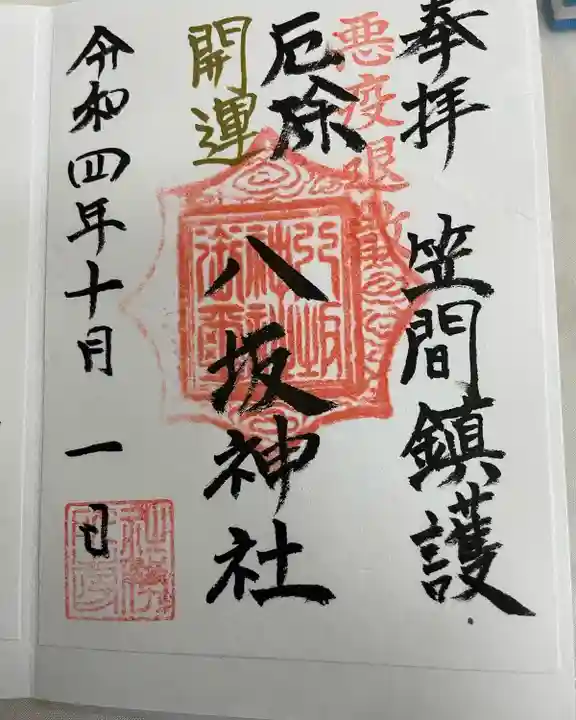 奉拝
笠間鎮護
悪疫退散
厄除
開運
八坂神社
令和四年十月一日